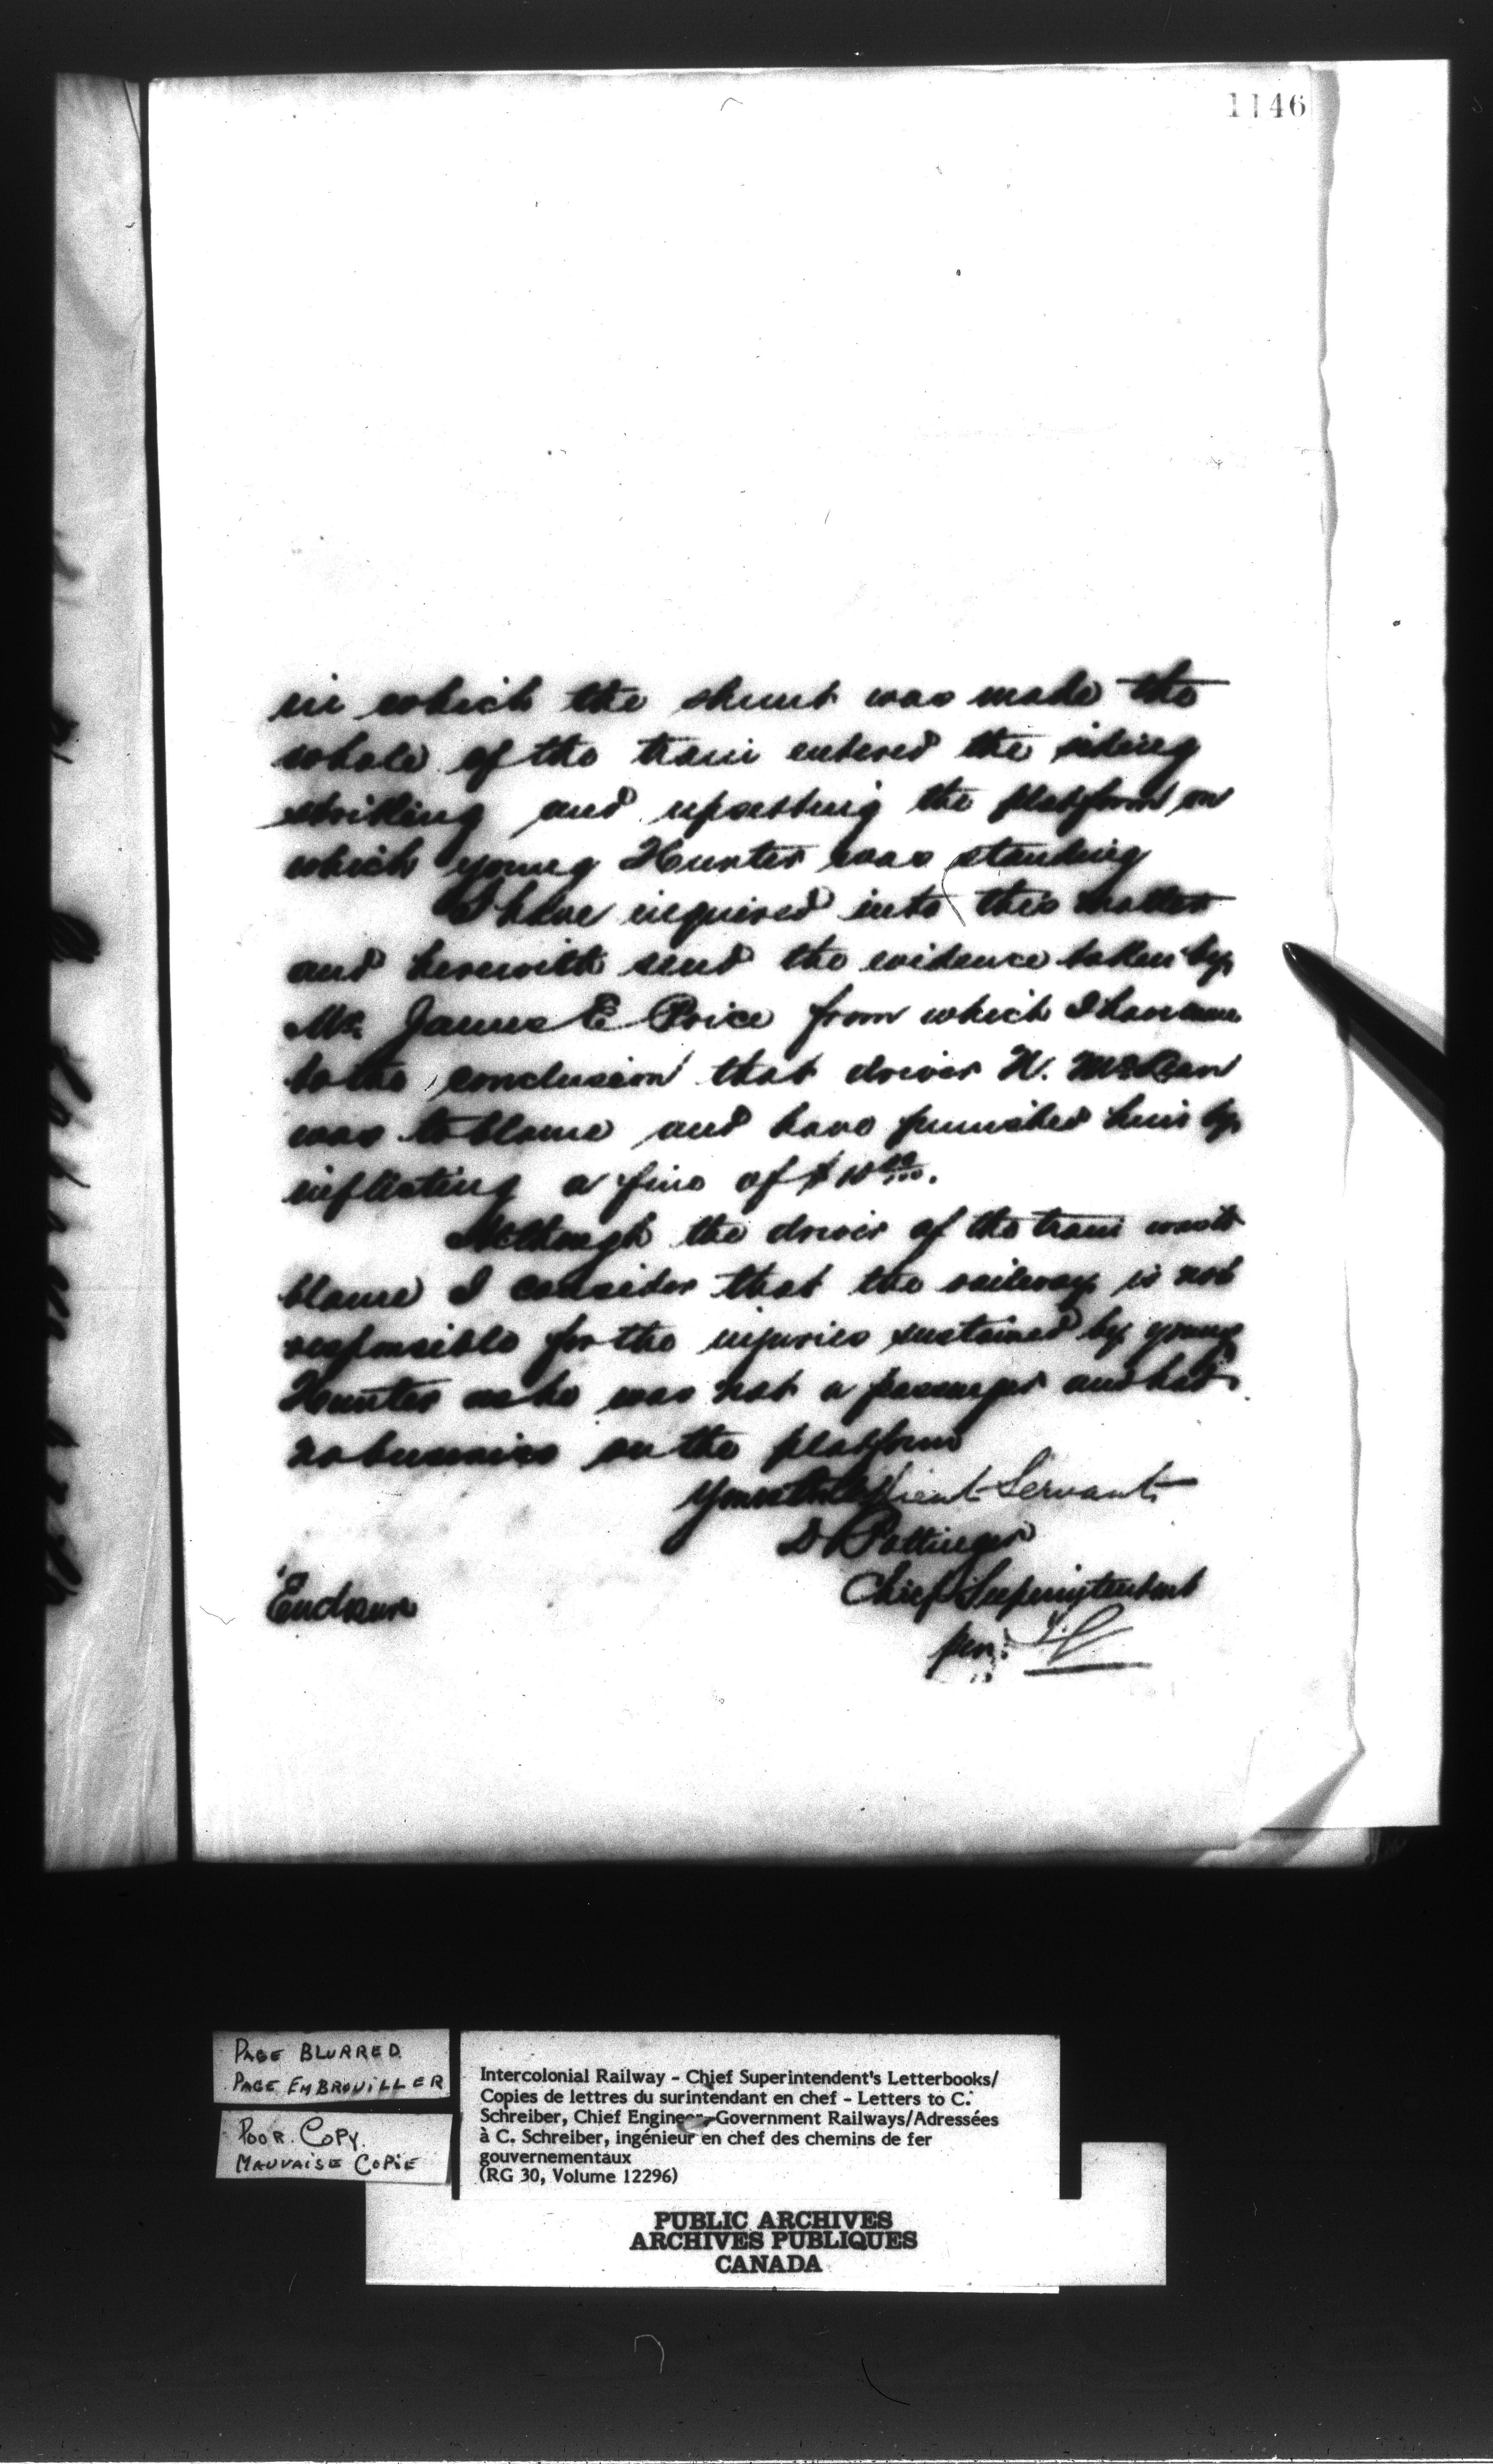 1146
in which the shunt was made the
whole of the train entered the siding
striking and upsetting the platform on
which young Hunter was standing
I have inquired into this matter
and herewith send the evidence taken by
Mr. James E Price from which I have come
to the conclusion that driver W.
was to blame and have punished him by
inflicting a fine of $
Although the driver of the train was to
blame I consider that the railway is not
responsible for the injuries sustained by young
Hunter who was not a passenger and had
no business on the platform
Your obedient Servant
D Pottinger
Chief Superintendent
per:
PAGE BLURRED
PAGE EMBROUILLER
POOR COPY.
MAUVAISE COPIE
Intercolonial Railway - Chief Superintendent's Letterbooks/
Copies de lettres du surintendant en chef - Letters to C.
Schreiber, Chief Engineer-Government Railways/Adressées
à C. Schreiber, ingénieur en chef des chemins de fer
gouvernementaux
(RG 30, Volume 12296)
PUBLIC ARCHIVES
ARCHIVES PUBLIQUES
CANADA